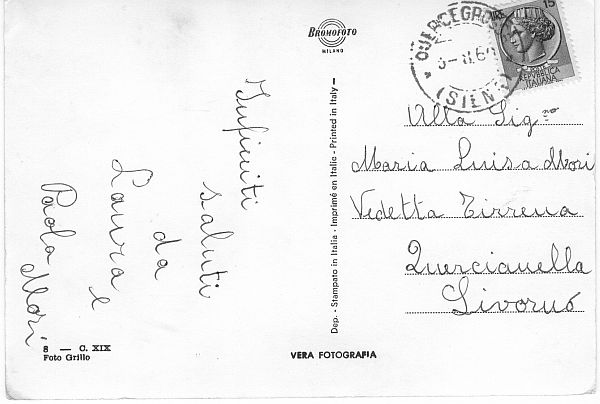 BROMOFOTO
MILANO
QUERCEGROSSA
(SIENA)
LIRE 15
POSTE
REPVBBLICA
ITALIANA
Infiniti
saluti
da
Laura e
Paola Mori
Dep. - Stampato in Italia - Imprimé en Italie - Printed in Italy -
Alla Sig.na
Maria Luisa Mori
Vedetta Tirrena
Quercianella
Livorno
8 — C. XIX
Foto Grillo
VERA FOTOGRAFIA